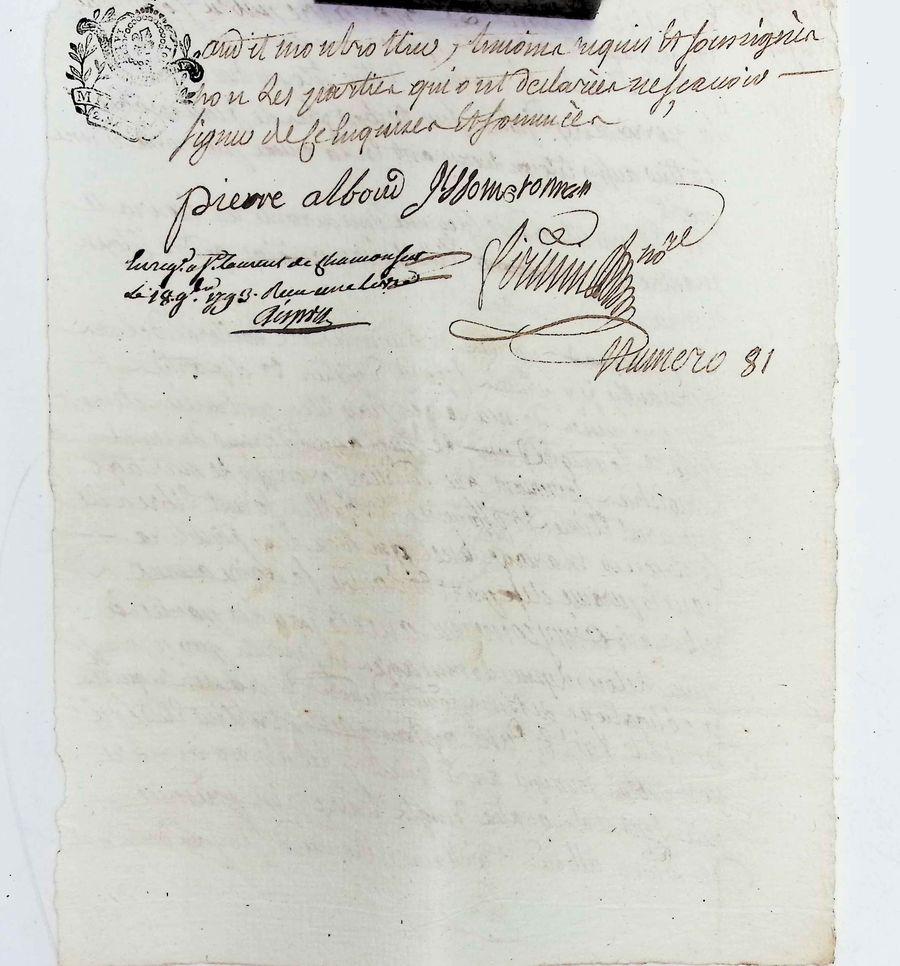 audit monbrottier, temoins requis et soussignés
non les parties qui ont declarées ne scavoir
signer de ce enquises et sommées
pierre alboud
nore
Enregt a St laurent de Chamousset
Le 18 9bre 1793. Reçu une livre
Numero 81